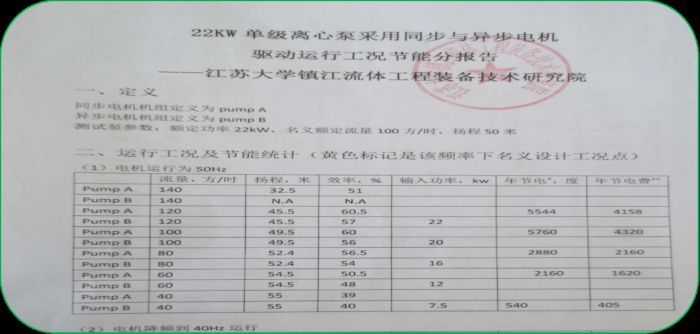 22KW 单级离心泵采用同步与异步电机
驱动运行工况节能分报告
——江苏大学镇江流体工程装备技术研究院
一、定义
同步电机机组定义为 pump A
异步电机机组定义为 pump B
测试泵参数：额定功率 22kW，名义额定流量 100 方/时，扬程 50 米
二、运行工况及节能统计（黄色标记是该频率下名义设计工况点）
（1）电机运行为 50Hz
流量，方/时 扬程，米 效率，% 输入功率，kw 年节电*，度 年节电费**
Pump A 140 32.5 51
Pump B 140 N.A N.A
Pump A 120 45.5 60.5 5544 4158
Pump B 120 45.5 57 22
Pump A 100 49.5 60 5760 4320
Pump B 100 49.5 56 20
Pump A 80 52.4 56.5 2880 2160
Pump B 80 52.4 54 16
Pump A 60 54.5 50.5 2160 1620
Pump B 60 54.5 48 12
Pump A 40 55 39
Pump B 40 55 40 7.5 540 405
（2）电机降频到 40Hz 运行